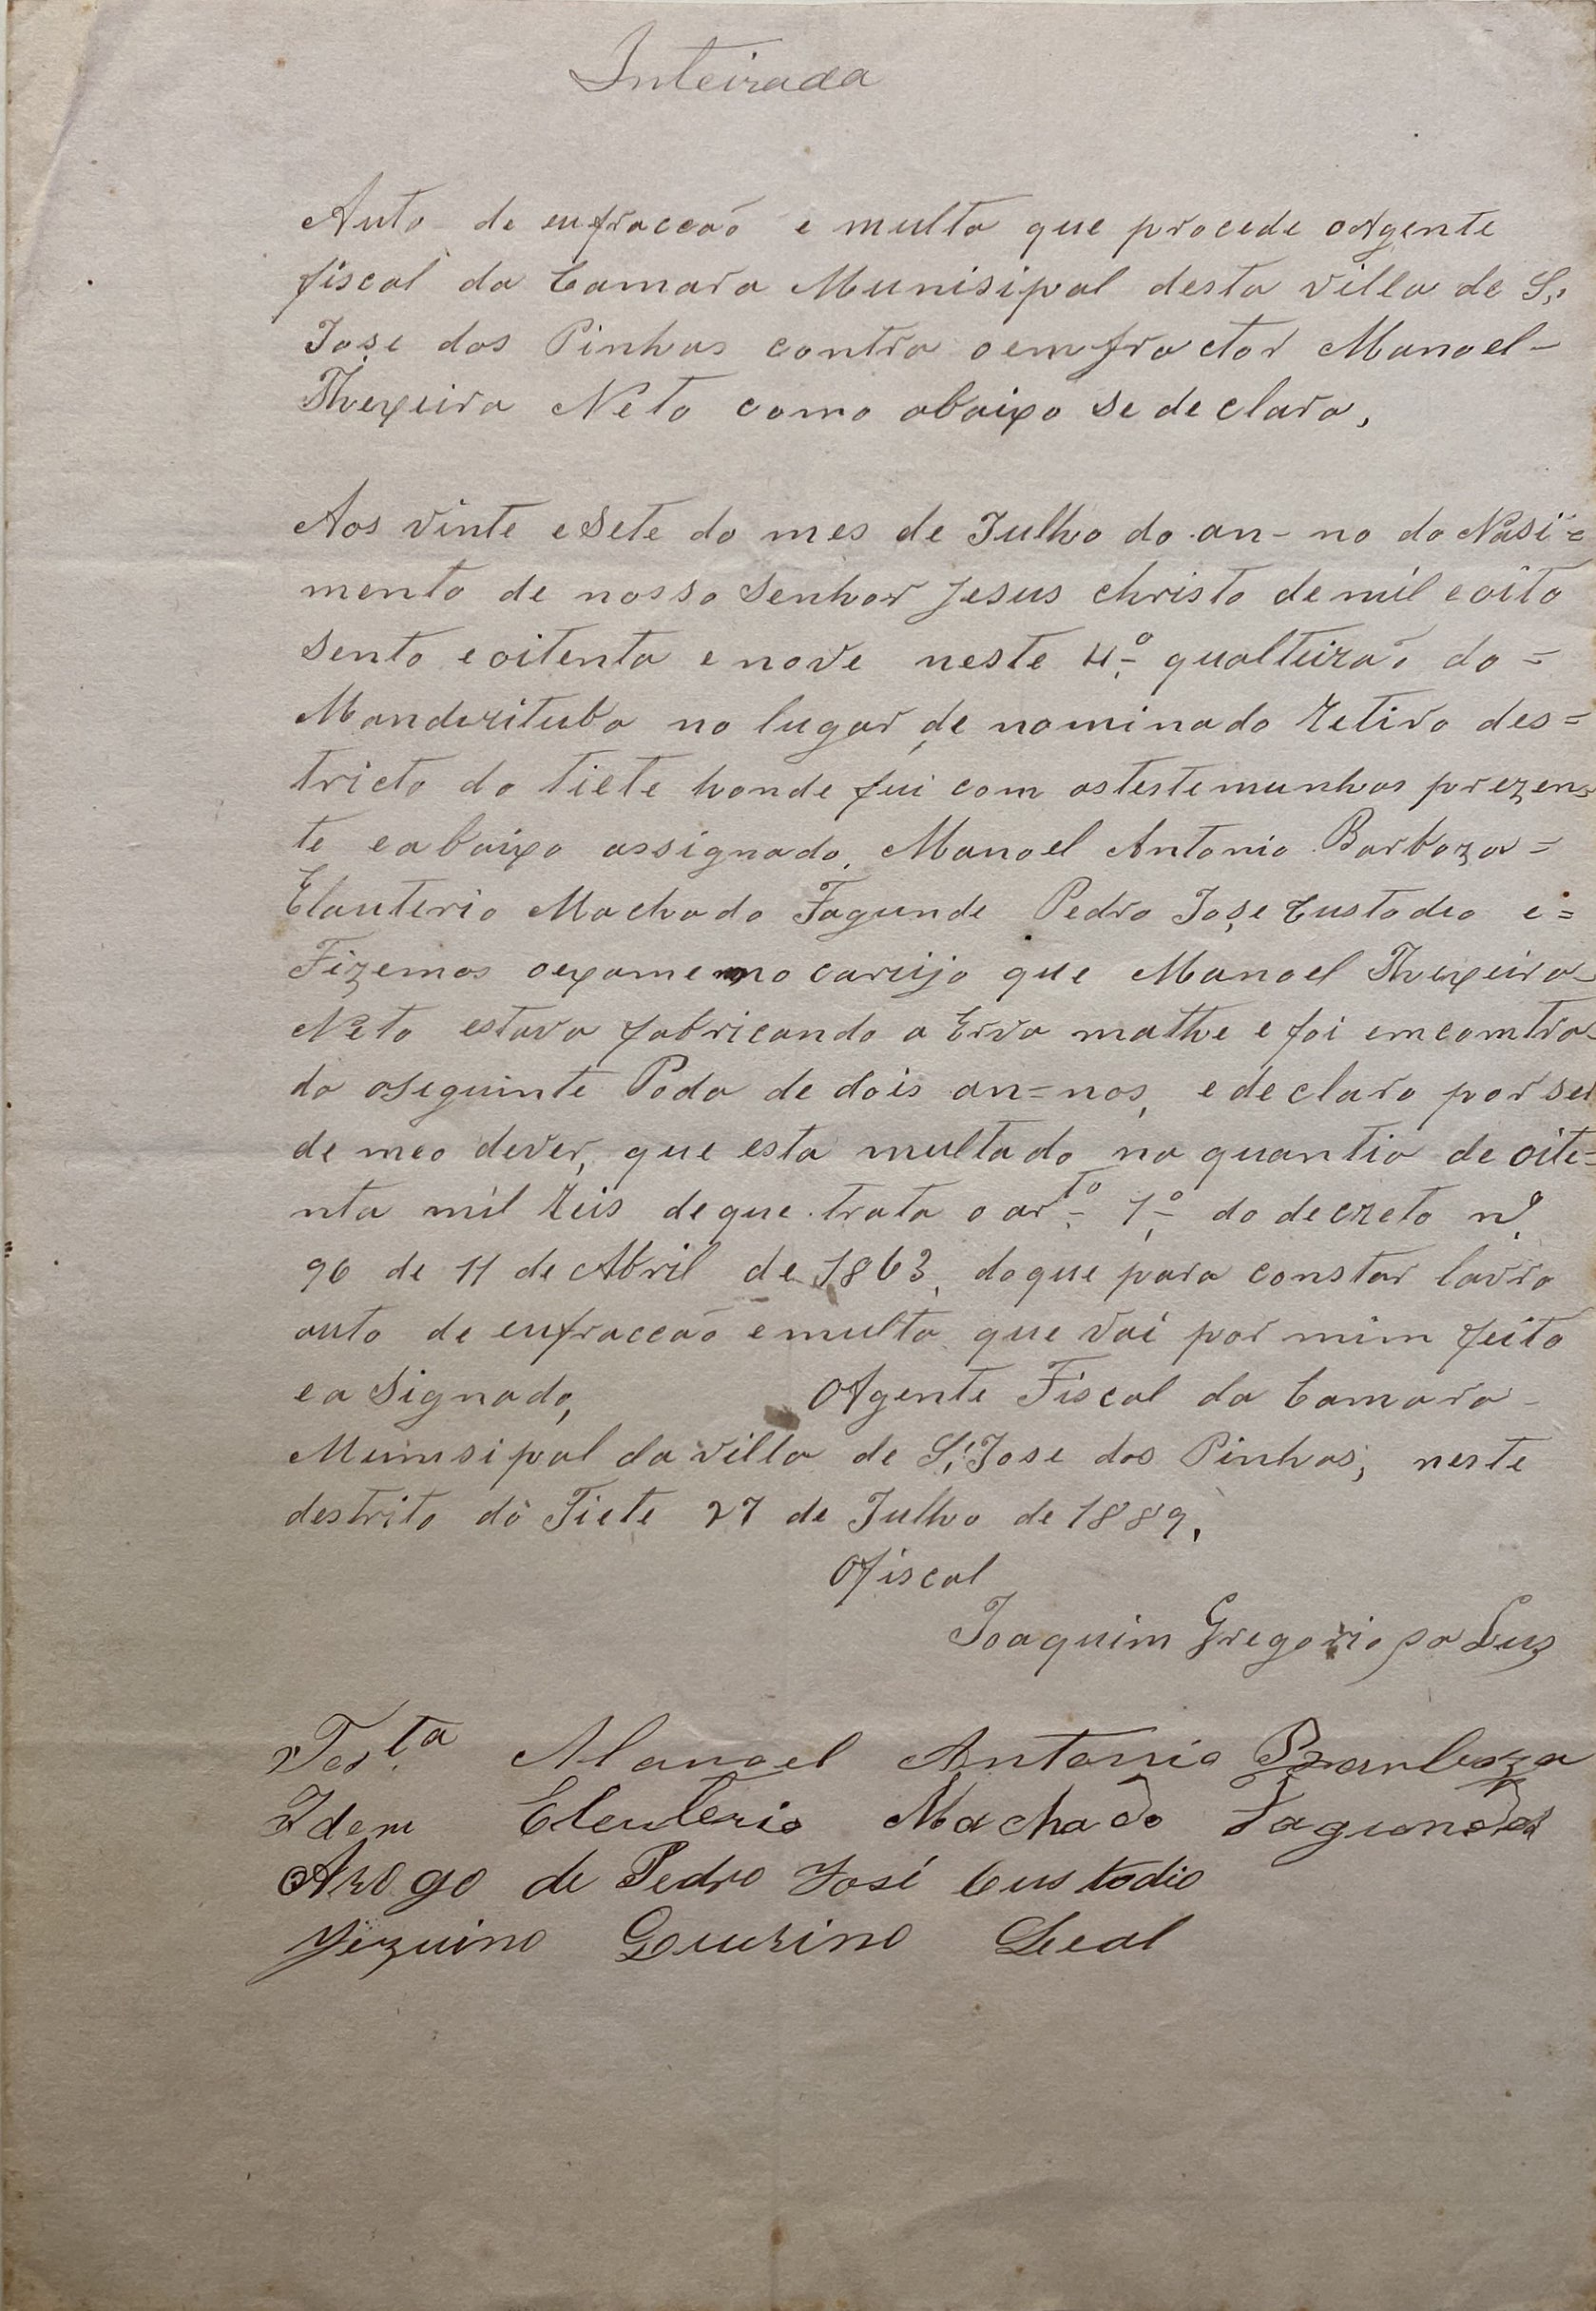 Inteirada
Auto de enfraccaõ e multa que procede oAgente
fiscal da Camara Munisipal desta villa de S.
Jose dos Pinhas contra oemfractor Manoel-
Theixeira Neto como abaixo se declara,
Aos vinte e Sete do mes de Julho do an-no do Nasi=
mento de nosso Senhor Jesus Christo de mil e oito
Sento e oitenta e nove neste 4º qualteiraõ do=
Mandirituba no lugar de nominado Retiro des=
tricto do tiete honde fui com as testemunhas prezen=
te e abaixo assignado, Manoel Antonio Barboza=
Elauterio Machado Fagunde Pedro Jose Custodio e=
Fizemos oexame no carijo que Manoel Theixeira-
Neto estava fabricando a Erva mathe e foi emcomtra-
do oseguinte Poda de dois an=nos, e declaro por ser
de meo dever, que esta multado na quantia de oite=
nta mil Reis de que trata o artº 1º do decreto nº
96 de 11 de Abril de 1863, do que para constar lavro
auto de enfraccaõ e multa que vai por mim feito
e a Signado, OAgente Fiscal da Camara-
Munisipal da villa de S. Jose dos Pinhas, neste
destrito do Tiete 27 de Julho de 1889,
Ofiscal
Joaquim Gregorio da Luz
Test.ta Manoel Antonio Barboza
Idem Eleuterio Machado Fagundes
ARogo de Pedro José Custodio
Jezuino Gourino Leal